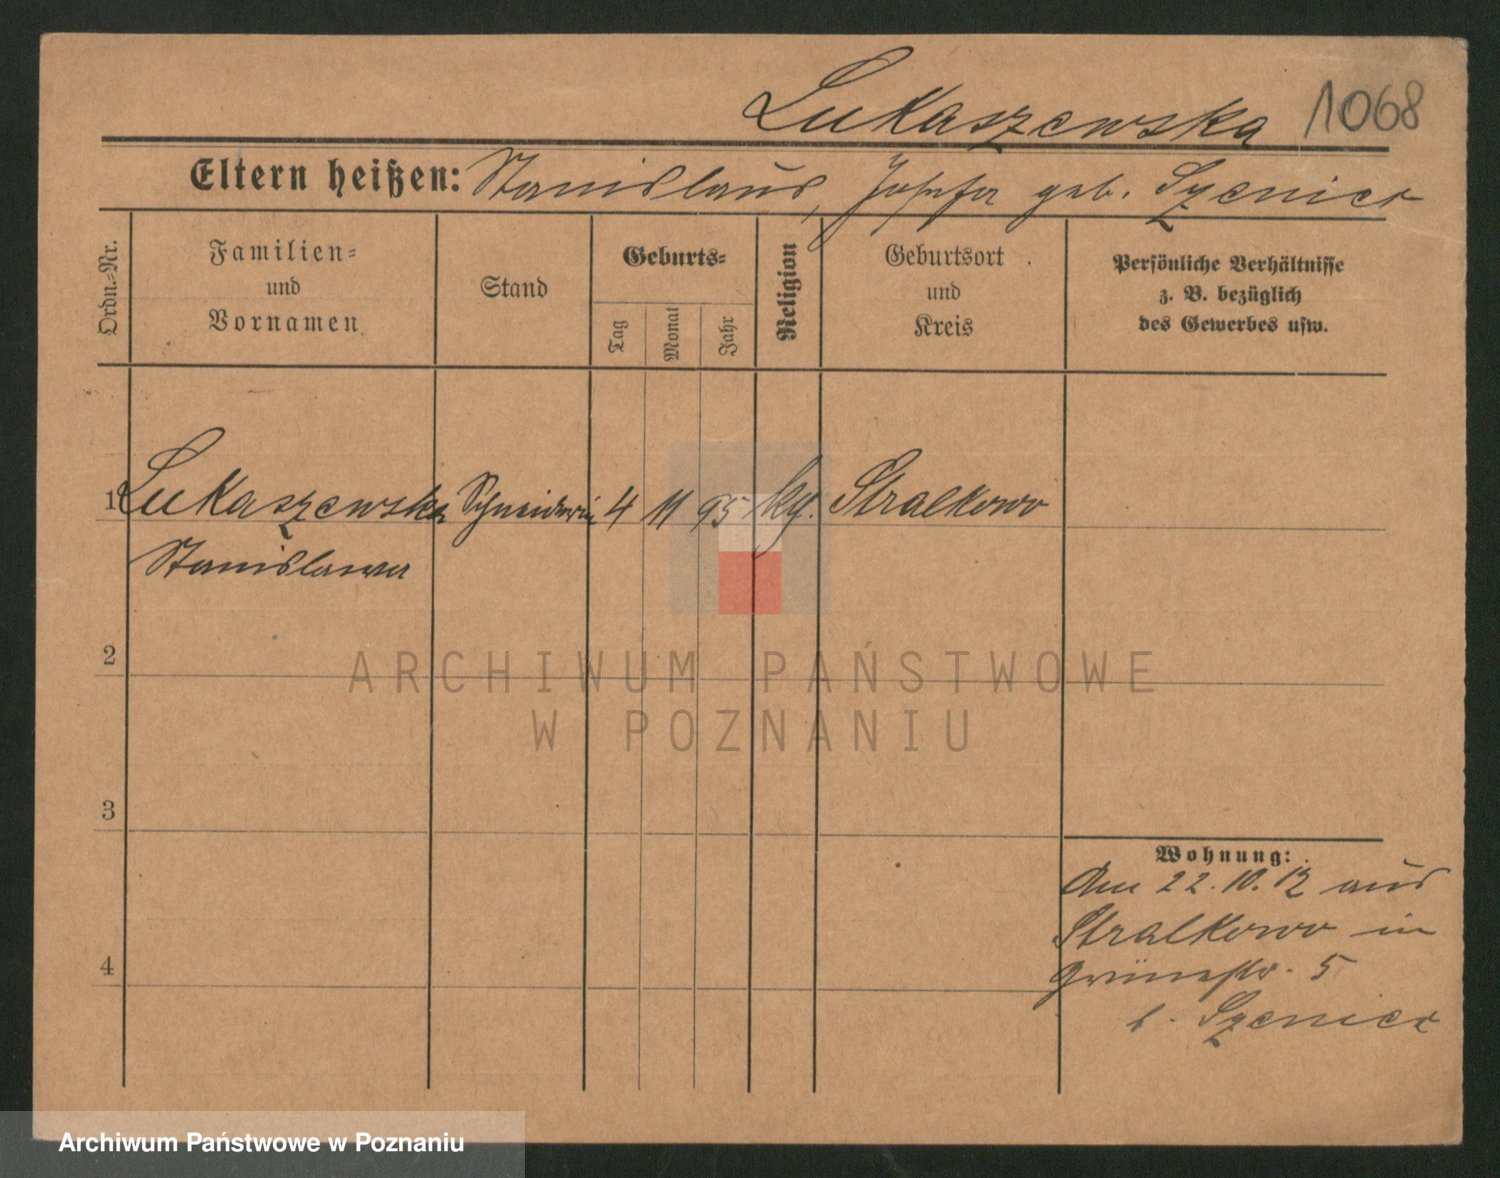 Lukaszewska 1068
Eltern heißen: Stanislaus, Josefa geb. Szenicer
Ordn.-Nr.
Familien-
und
Vornamen
Stand
Geburts-
Tag
Monat
Jahr
Religion
Geburtsort
und
Kreis
Persönliche Verhältnisse
z. B. bezüglich
des Gewerbes usw.
1 Lukaszewska Schneiderin 4 11 95 kg. Stralkowo
Stanislawa
2
ARCHIWUM PAŃSTWOWE
W POZNANIU
3
Wohnung:
Am 22.10.12 aus
Stralkowo in
4
Grünestr. 5
b. Szenicer
Archiwum Państwowe w Poznaniu